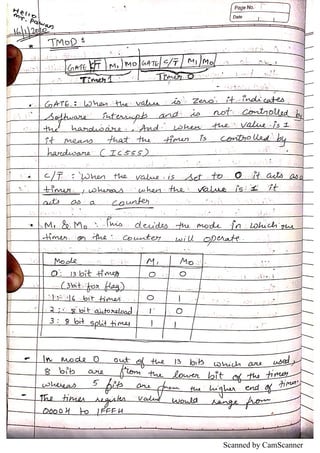 Page No.
Date
Hello
Mr. Pawan
TMOD :
GATE C/T M1 M0 GATE C/T M1 M0
Timer 1 Timer 0
GATE : When the value is zero it indicates
Software interrupt and is not controlled by
the hardware. And when the value is 1
it means that the timer is controlled by
hardware (IC555)
C/T : When the value is set to 0 it acts as a
timer, whereas when the value is 1 it
acts as a counter
M1 & M0 : This decides the mode in which the
timer or the counter will operate.
Mode M1 M0
0: 13 bit timer 0 0
(3bit for flag)
1:- 16 bit timer 0 1
2:- 8 bit autoreload 1 0
3: 8 bit split timer 1 1
- In mode 0 out of the 13 bits which are used,
8 bits are from the lower bit of the timer
whereas 5 bits are from the higher end of timer
- The timer register value would range from
0000H to 1FFFH
Scanned by CamScanner